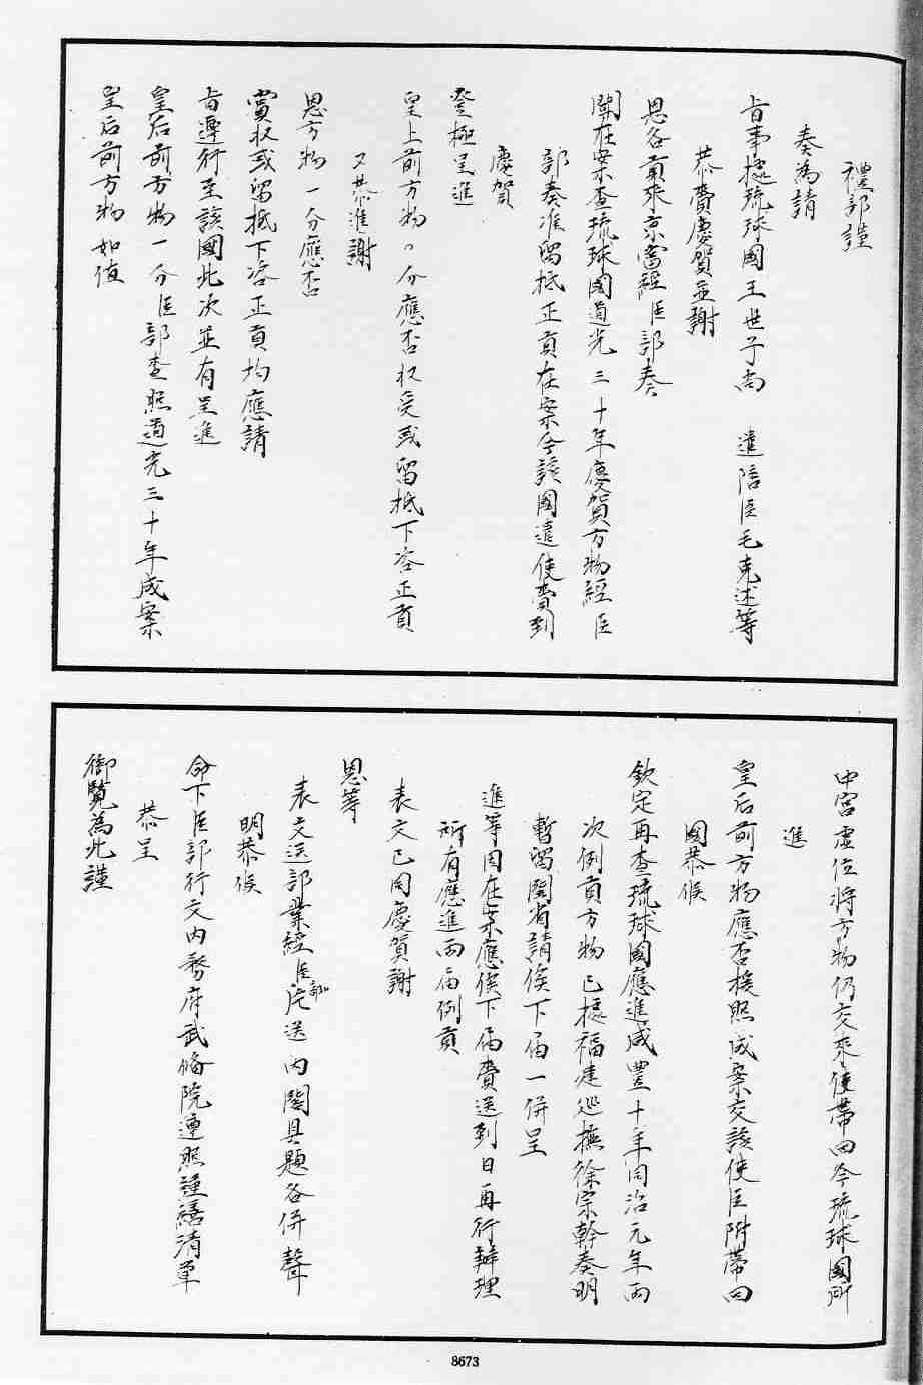 禮部謹
奏為請
旨事據琉球國王世子尚 遣陪臣毛克述等
恭齎慶賀並謝
恩各貢來京當經臣部奏
聞在案查琉球國道光三十年慶賀方物經臣
部奏准留抵正貢在案今該國遣使齎到
慶賀
登極呈進
皇上前方物一分應否收受或留抵下次正貢
又恭進謝
恩方物一分應否
賞收或留抵下次正貢均應請
旨遵行至該國此次並有呈進
皇后前方物一分臣部查照道光三十年成案
皇后前方物如值
中宮虛位將方物仍交來使帶回今琉球國所
進
皇后前方物應否援照成案交該使臣附帶回
國恭候
欽定再查琉球國應進咸豐十年同治元年兩
次例貢方物已據福建巡撫徐宗幹奏明
暫留閩省請俟下屆一併呈
進等因在案應俟下屆齎送到日再行辦理
所有應進兩屆例貢
表文已同慶賀謝
恩等
表文送部業經臣部片送內閣具題各併聲
明恭候
命下臣部行文內務府武備院遵照謹繕清單
恭呈
御覽為此謹
8673